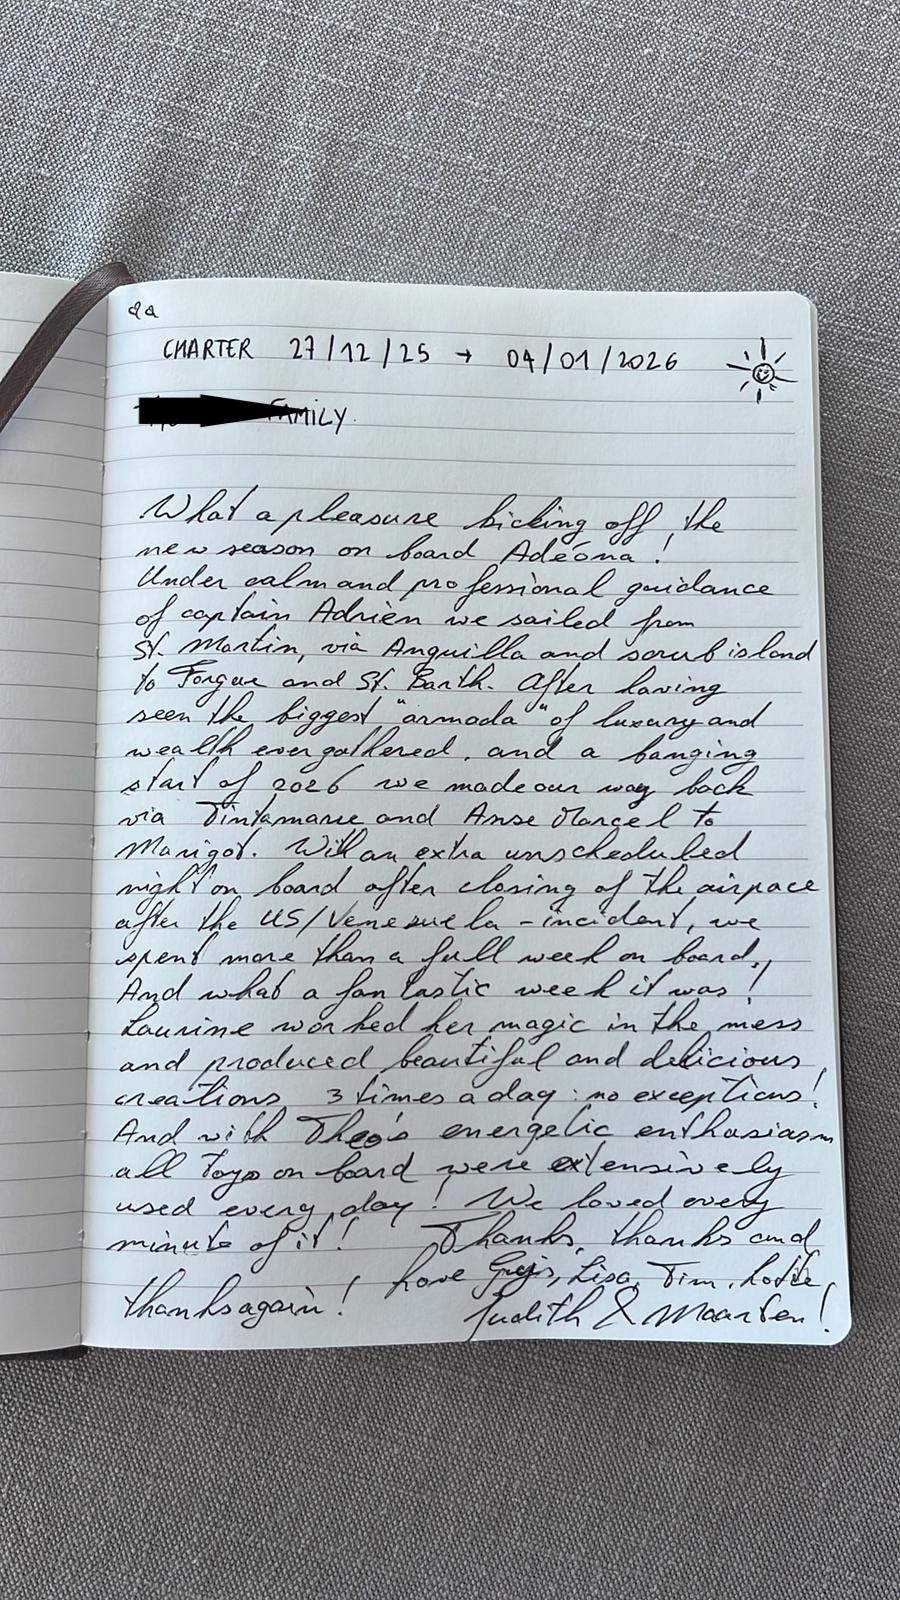 CHARTER 27/12/25 → 04/01/2026
FAMILY
What a pleasure kicking off the
new season on board Adéona!
Under calm and professional guidance
of captain Adrien we sailed from
St. Martin, via Anguilla and scrub island
to Forgue and St. Barth. After having
seen the biggest "armada" of luxury and
wealth ever gathered, and a banging
start of 2026 we made our way back
via Tintamarre and Anse Marcel to
Marigot. With an extra unscheduled
night on board after closing of the airpace
after the US/Venezuela-incident, we
spent more than a full week on board.
And what a fantastic week it was!
Laurine worked her magic in the mess
and produced beautiful and delicious
creations 3 times a day: no exceptions!
And with Theo's energetic enthasiasm
all toys on board were extensively
used every day! We loved every
minute of it! Thanks, thanks and
thanks again! Love Gijs, Lisa, Tim, Lotte,
Judith & Maarten!